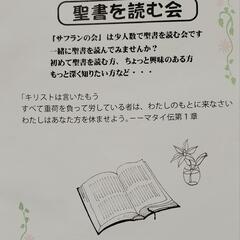 聖書を読む会
『サフランの会』は少人数で聖書を読む会です
一緒に聖書を読んでみませんか？
初めて聖書を読む方、ちょっと興味のある方
もっと深く知りたい方など・・・
「キリストは言いたもう
すべて重荷を負って労している者は、わたしのもとに来なさい
わたしはあなた方を休ませよう。ーーマタイ伝第１章